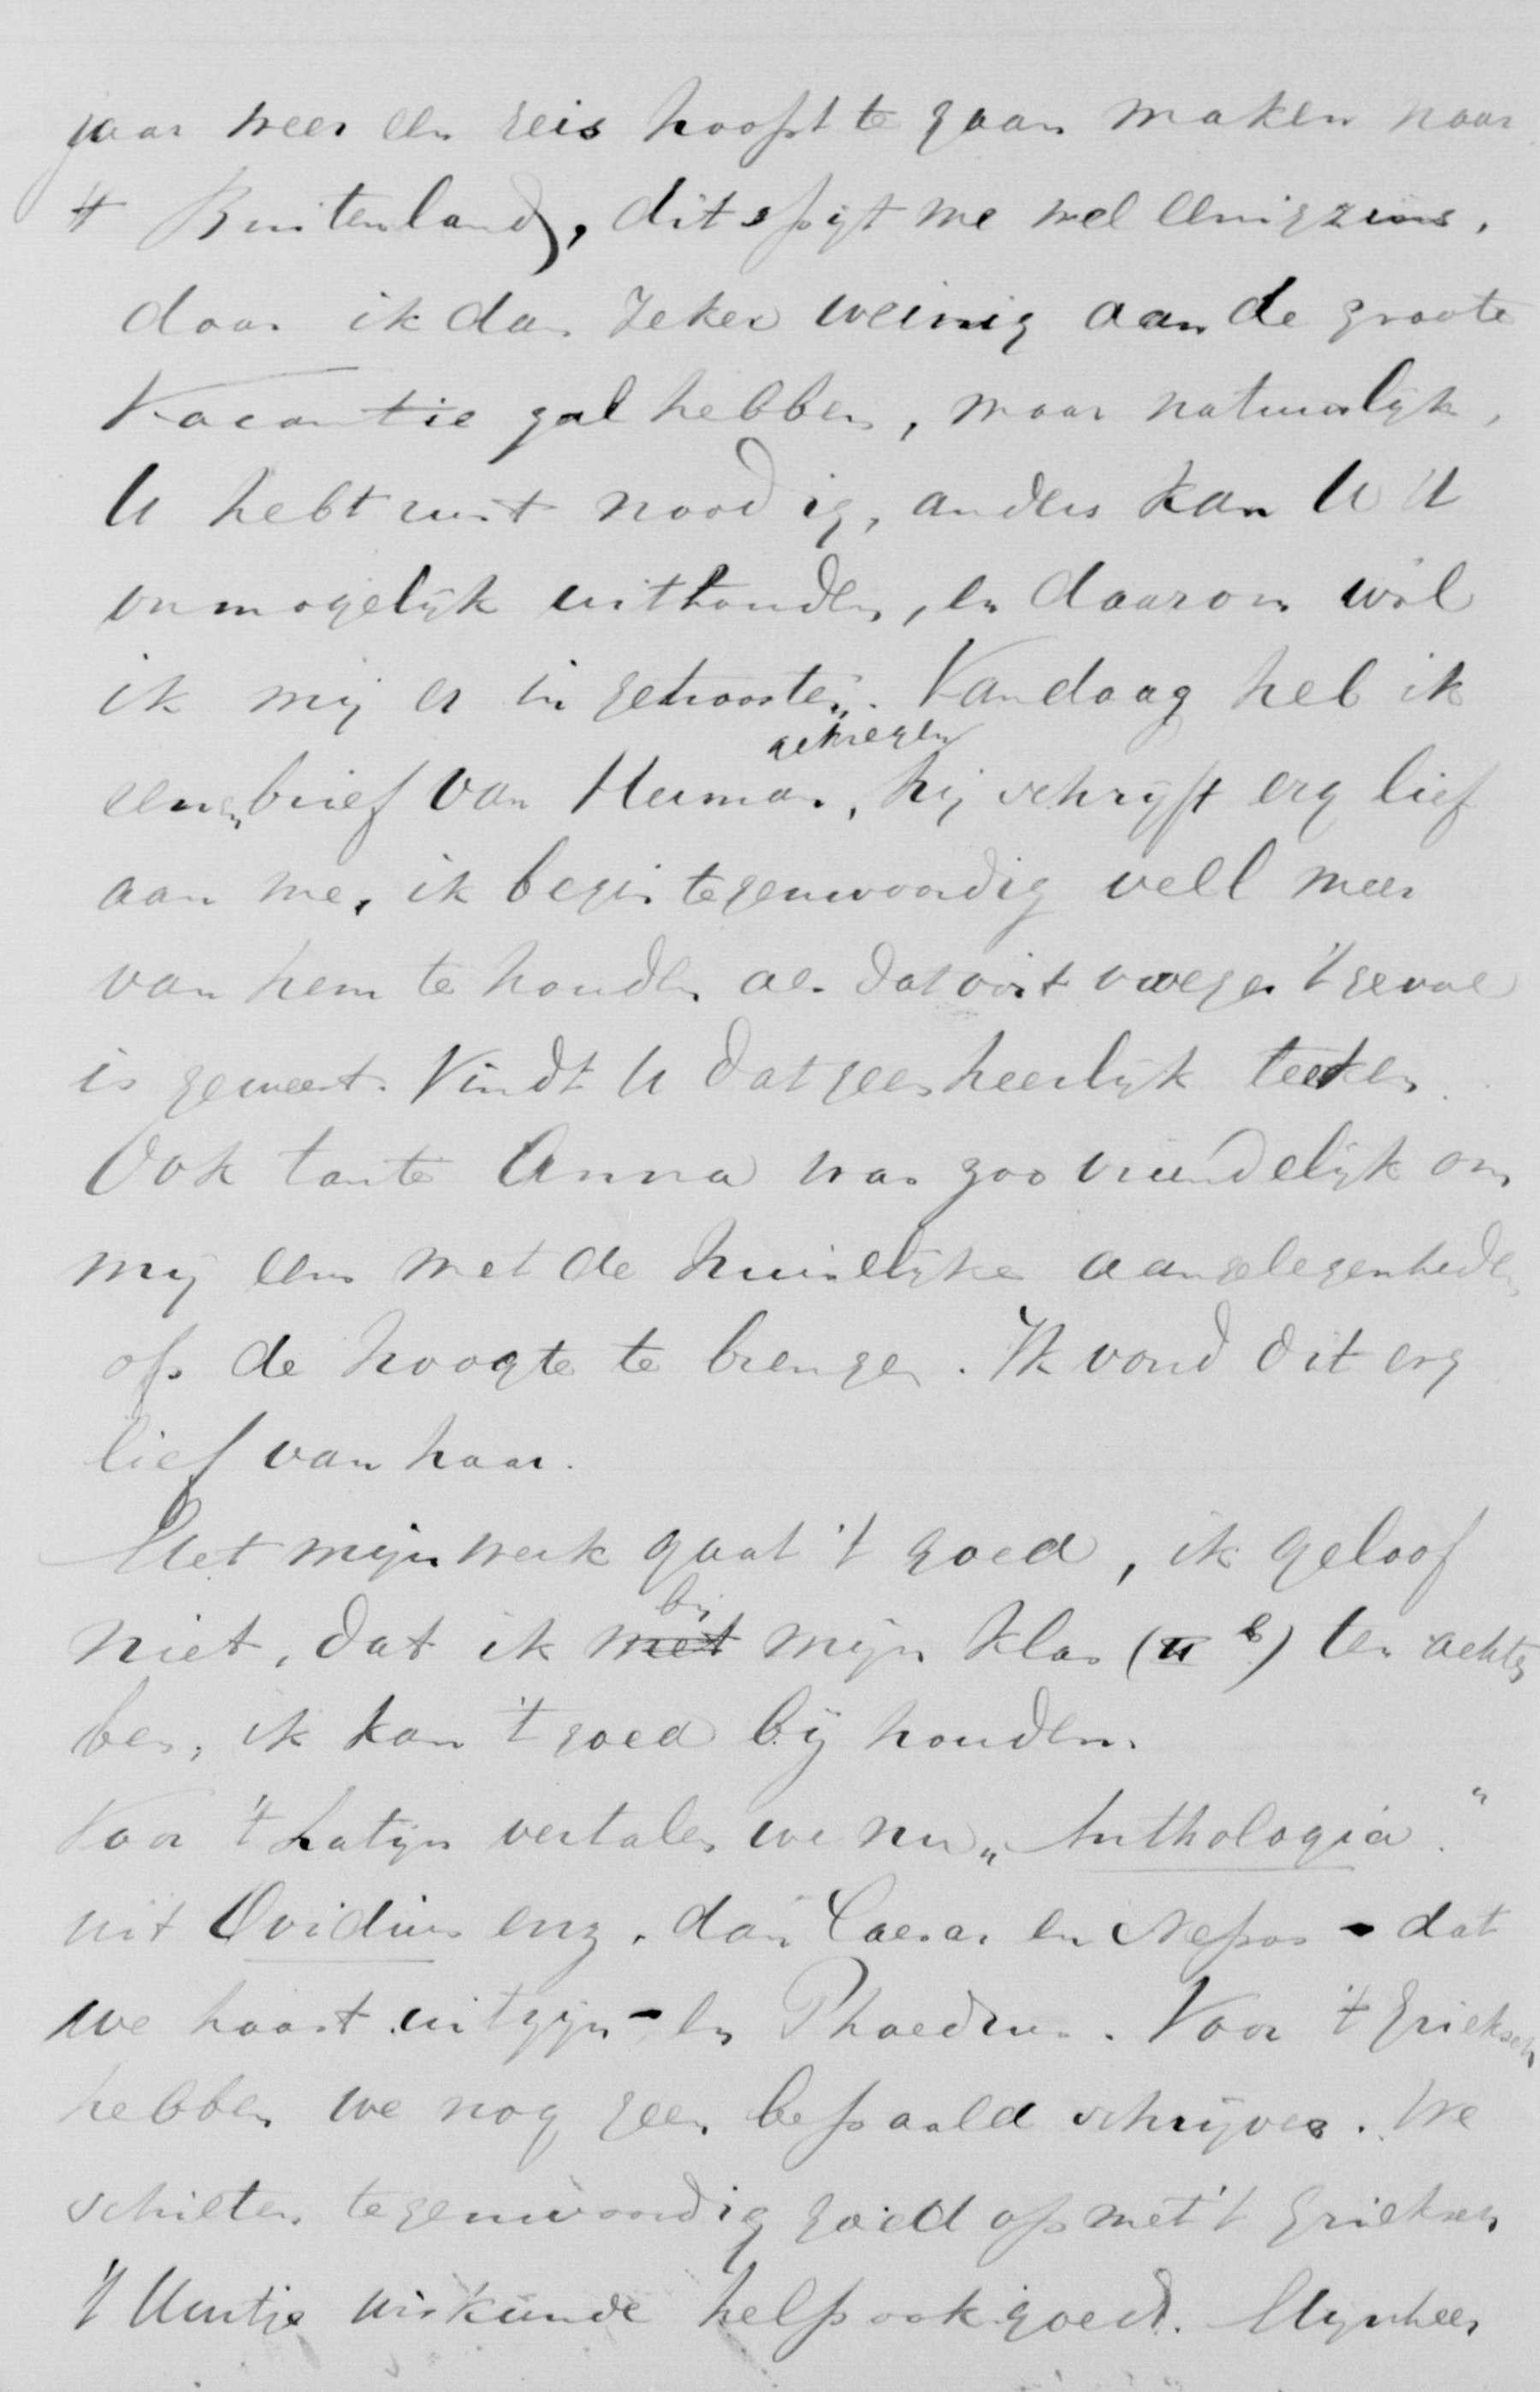 jaar weer een reis hoopt te gaan maken naar
't Buitenland, dit spijt me wel eenigzins,
daar ik dan zeker weinig aan de groote
Vacantie zal hebben, maar natuurlijk,
U hebt rust noodig, anders kan U 't
onmogelijk uithouden, en daarom wil
ik mij er in getroosten. Vandaag heb ik
gekregen
een brief van Herman, hij schrijft erg lief
aan me, ik begin tegenwoordig veel meer
van hem te houden als dat ooit vroeger 't geval
is geweest. Vindt U dat geen heerlijk teeken.
Ook tante Anna was zoo vriendelijk om
mij eens met de huiselijke aangelegenheden
op de hoogte te brengen. Ik vond dit erg
lief van haar.
Met mijn werk gaat 't goed, ik geloof
bij
niet, dat ik met mijn klas (II b) ten achter
ben, ik kan 't goed bij houden.
Voor 't Latijn vertalen we nu „Anthologia"
uit Ovidius enz. dan Caesar en Nepos - dat
we haast uitzijn - en Phaedrus. Voor 't Grieksch
hebben we nog geen bepaald schrijver. We
schieten tegenwoordig goed op met 't Grieksch
't Uurtje wiskunde help ook goed. Mijnheer